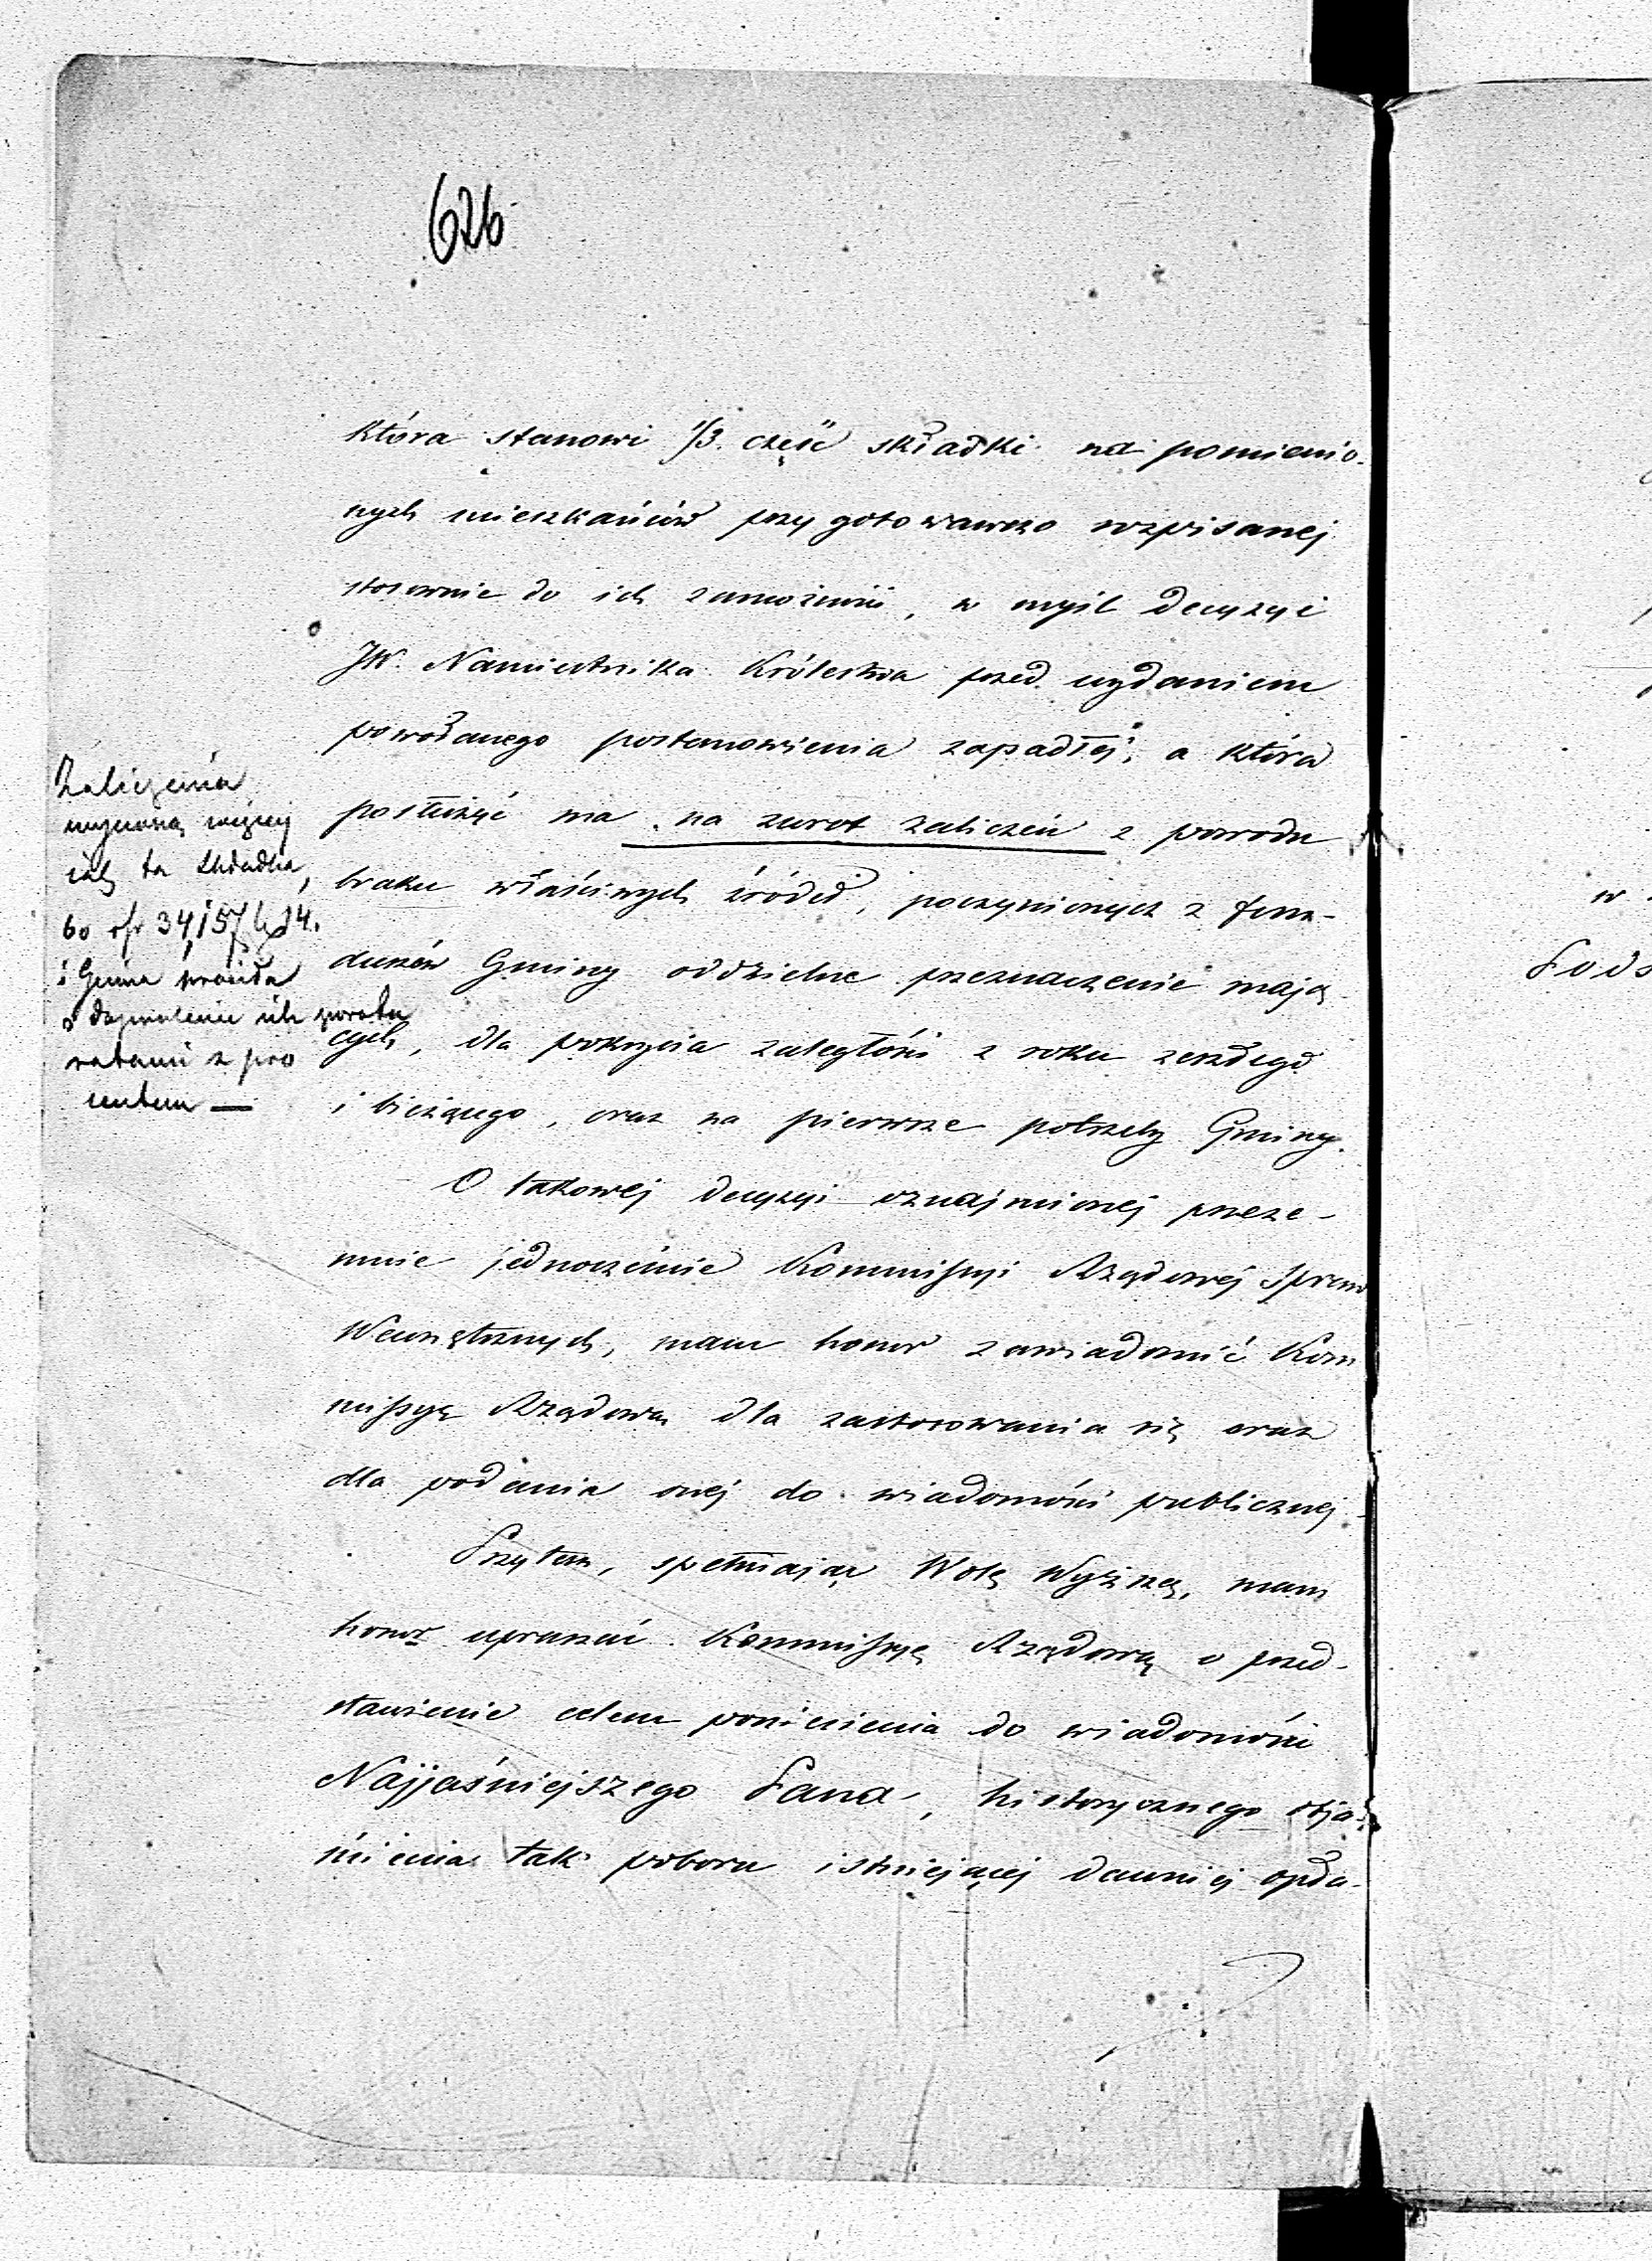 626
która stanowi 1/3. część składki na pomienio-
nych mieszkańców przygotowawczo rozpisanej
stosownie do ich zamożności, w myśl decyzyi
JW. Namiestnika Królestwa przed wydaniem
powołanego postanowienia zapadłej, a która
posłużyć ma na zwrot zaliczeń z powodu
braku właściwych źródeł, poczynionych z fun-
duszów Gminy oddzielne przeznaczenie mają
cych, dla pokrycia zaległości z roku zeszłego
i bieżącego, oraz na pierwsze potrzeby Gminy.
O takowej decyzyi oznajmionej przeze-
mnie jednocześnie Kommissyi Rządowej Spraw
Wewnętrznych, mam honor zawiadomić Kom
missyę Rządową dla zastosowania się oraz
dla podania onej do wiadomości publicznej
Przytem, spełniając Wolę Wyższą, mam
honor upraszać Kommissyę Rządową o przed-
stawienie celem poniesienia do wiadomości
Najjaśniejszego Pana, historycznego obja-
śnienia tak poboru istniejącej dawniej opła-
Zaliczenia
wynoszą więcej
ta składka,
bo 34,157
i Gmina
o dozwolenie ich zwrotu
ratami z pro
centem —
w
Pods